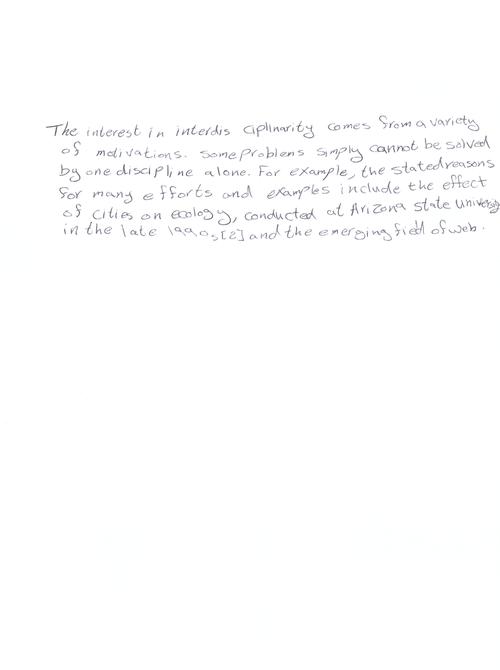 The interest in interdisciplinarity comes from a variety
of motivations. Some problems simply cannot be solved
by one discipline alone. For example, the stated reasons
for many efforts and examples include the effect
of cities on ecology, conducted at Arizona state University
in the late 1990s[2] and the emerging field of web.